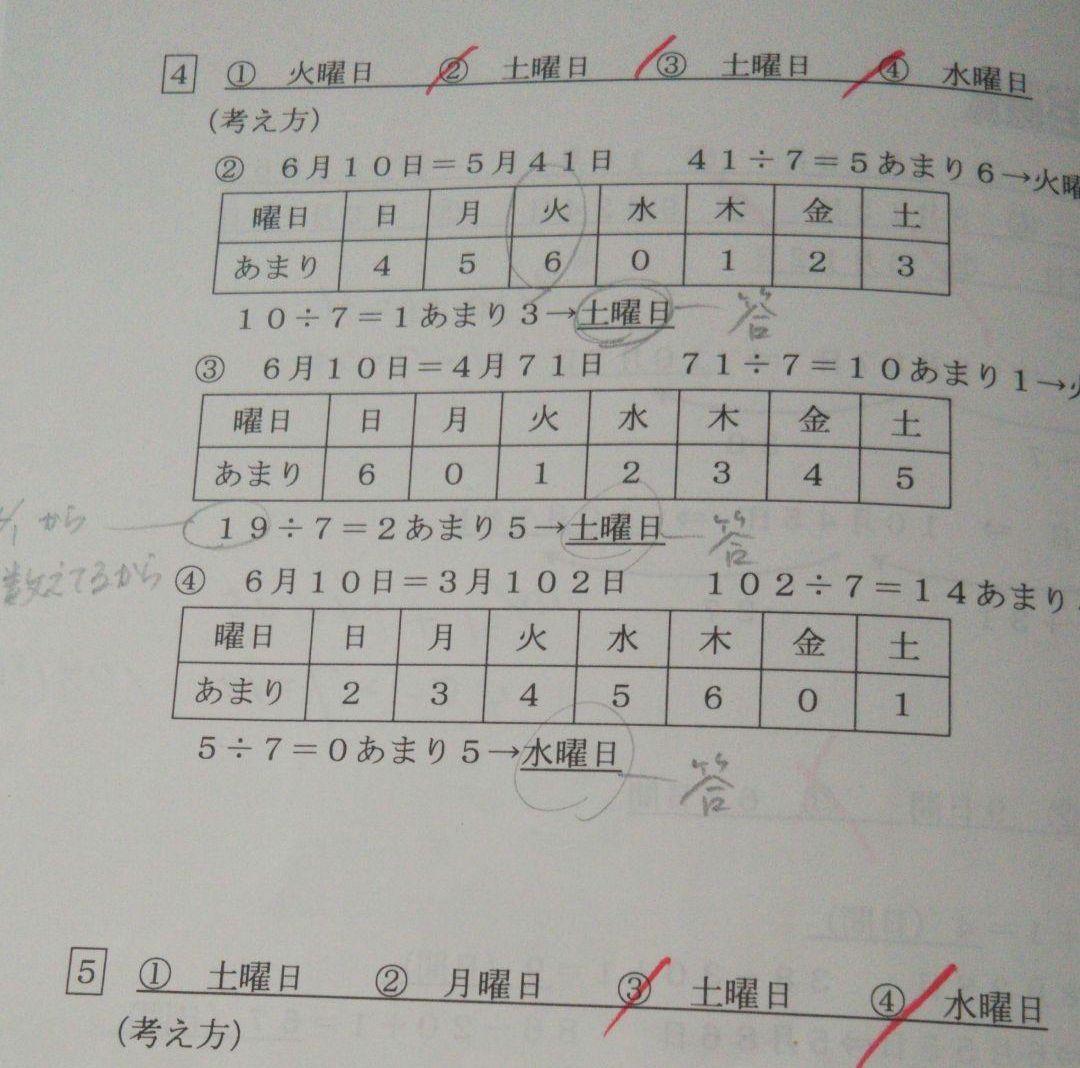 4 ① 火曜日 ② 土曜日 ③ 土曜日 ④ 水曜日
(考え方)
② 6月10日=5月41日 41÷7=5あまり6→火曜
曜日 日 月 火 水 木 金 土
あまり 4 5 6 0 1 2 3
10÷7=1あまり3→土曜日 答
③ 6月10日=4月71日 71÷7=10あまり1→火
曜日 日 月 火 水 木 金 土
あまり 6 0 1 2 3 4 5
から 19÷7=2あまり5→土曜日 答
数えてるから ④ 6月10日=3月102日 102÷7=14あまり
曜日 日 月 火 水 木 金 土
あまり 2 3 4 5 6 0 1
5÷7=0あまり5→水曜日 答
5 ① 土曜日 ② 月曜日 ③ 土曜日 ④ 水曜日
(考え方)